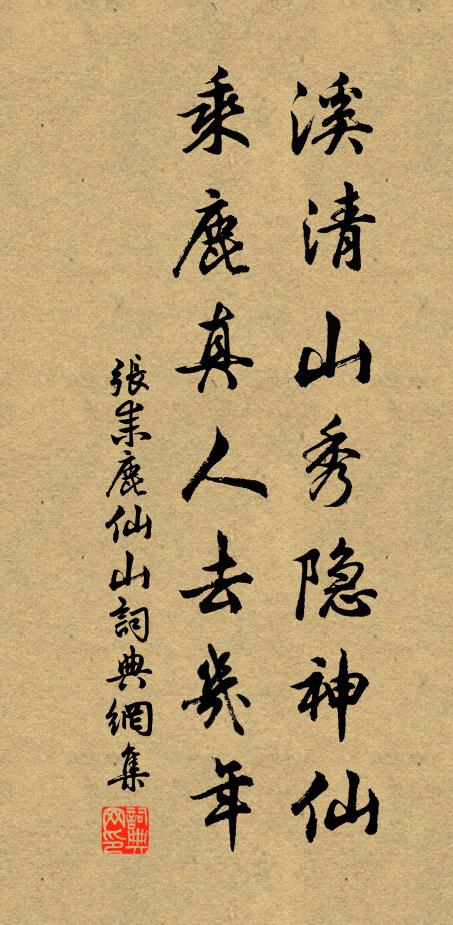 溪清山秀隐神仙
乘鹿真人去几年
張耒鹿仙山詞典網集
詞典网印